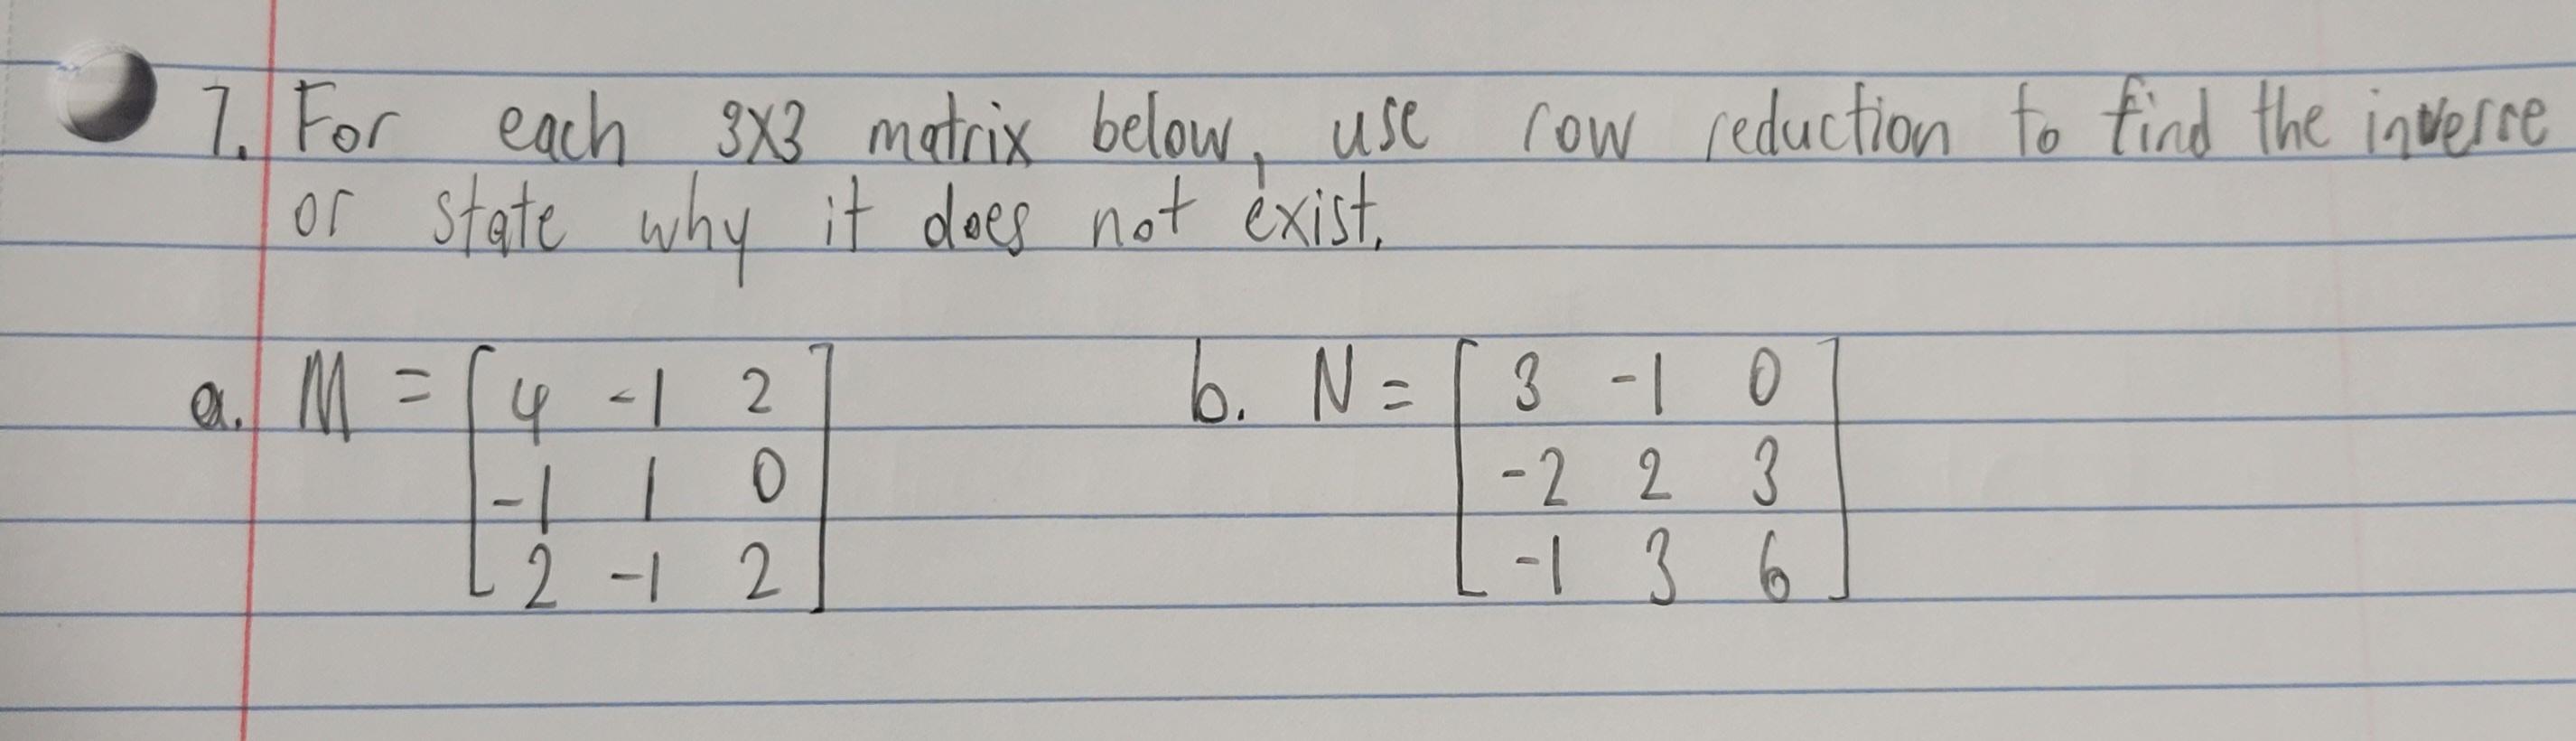 7. For each 3x3 matrix below, use row reduction to find the inverse
or state why it does not exist.
a. M = [ 4 -1 2 b. N = [ 3 -1 0
-1 1 0 -2 2 3
2 -1 2 ] -1 3 6 ]